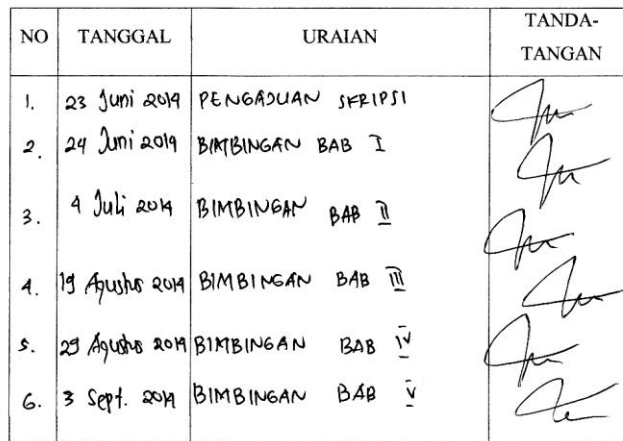 NO TANGGAL URAIAN TANDA-
TANGAN
1. 23 Juni 2014 PENGAJUAN SKRIPSI
2. 24 Juni 2014 BIMBINGAN BAB I
3. 4 Juli 2014 BIMBINGAN BAB II
4. 19 Agustus 2014 BIMBINGAN BAB III
5. 29 Agustus 2014 BIMBINGAN BAB IV
6. 3 Sept. 2014 BIMBINGAN BAB V